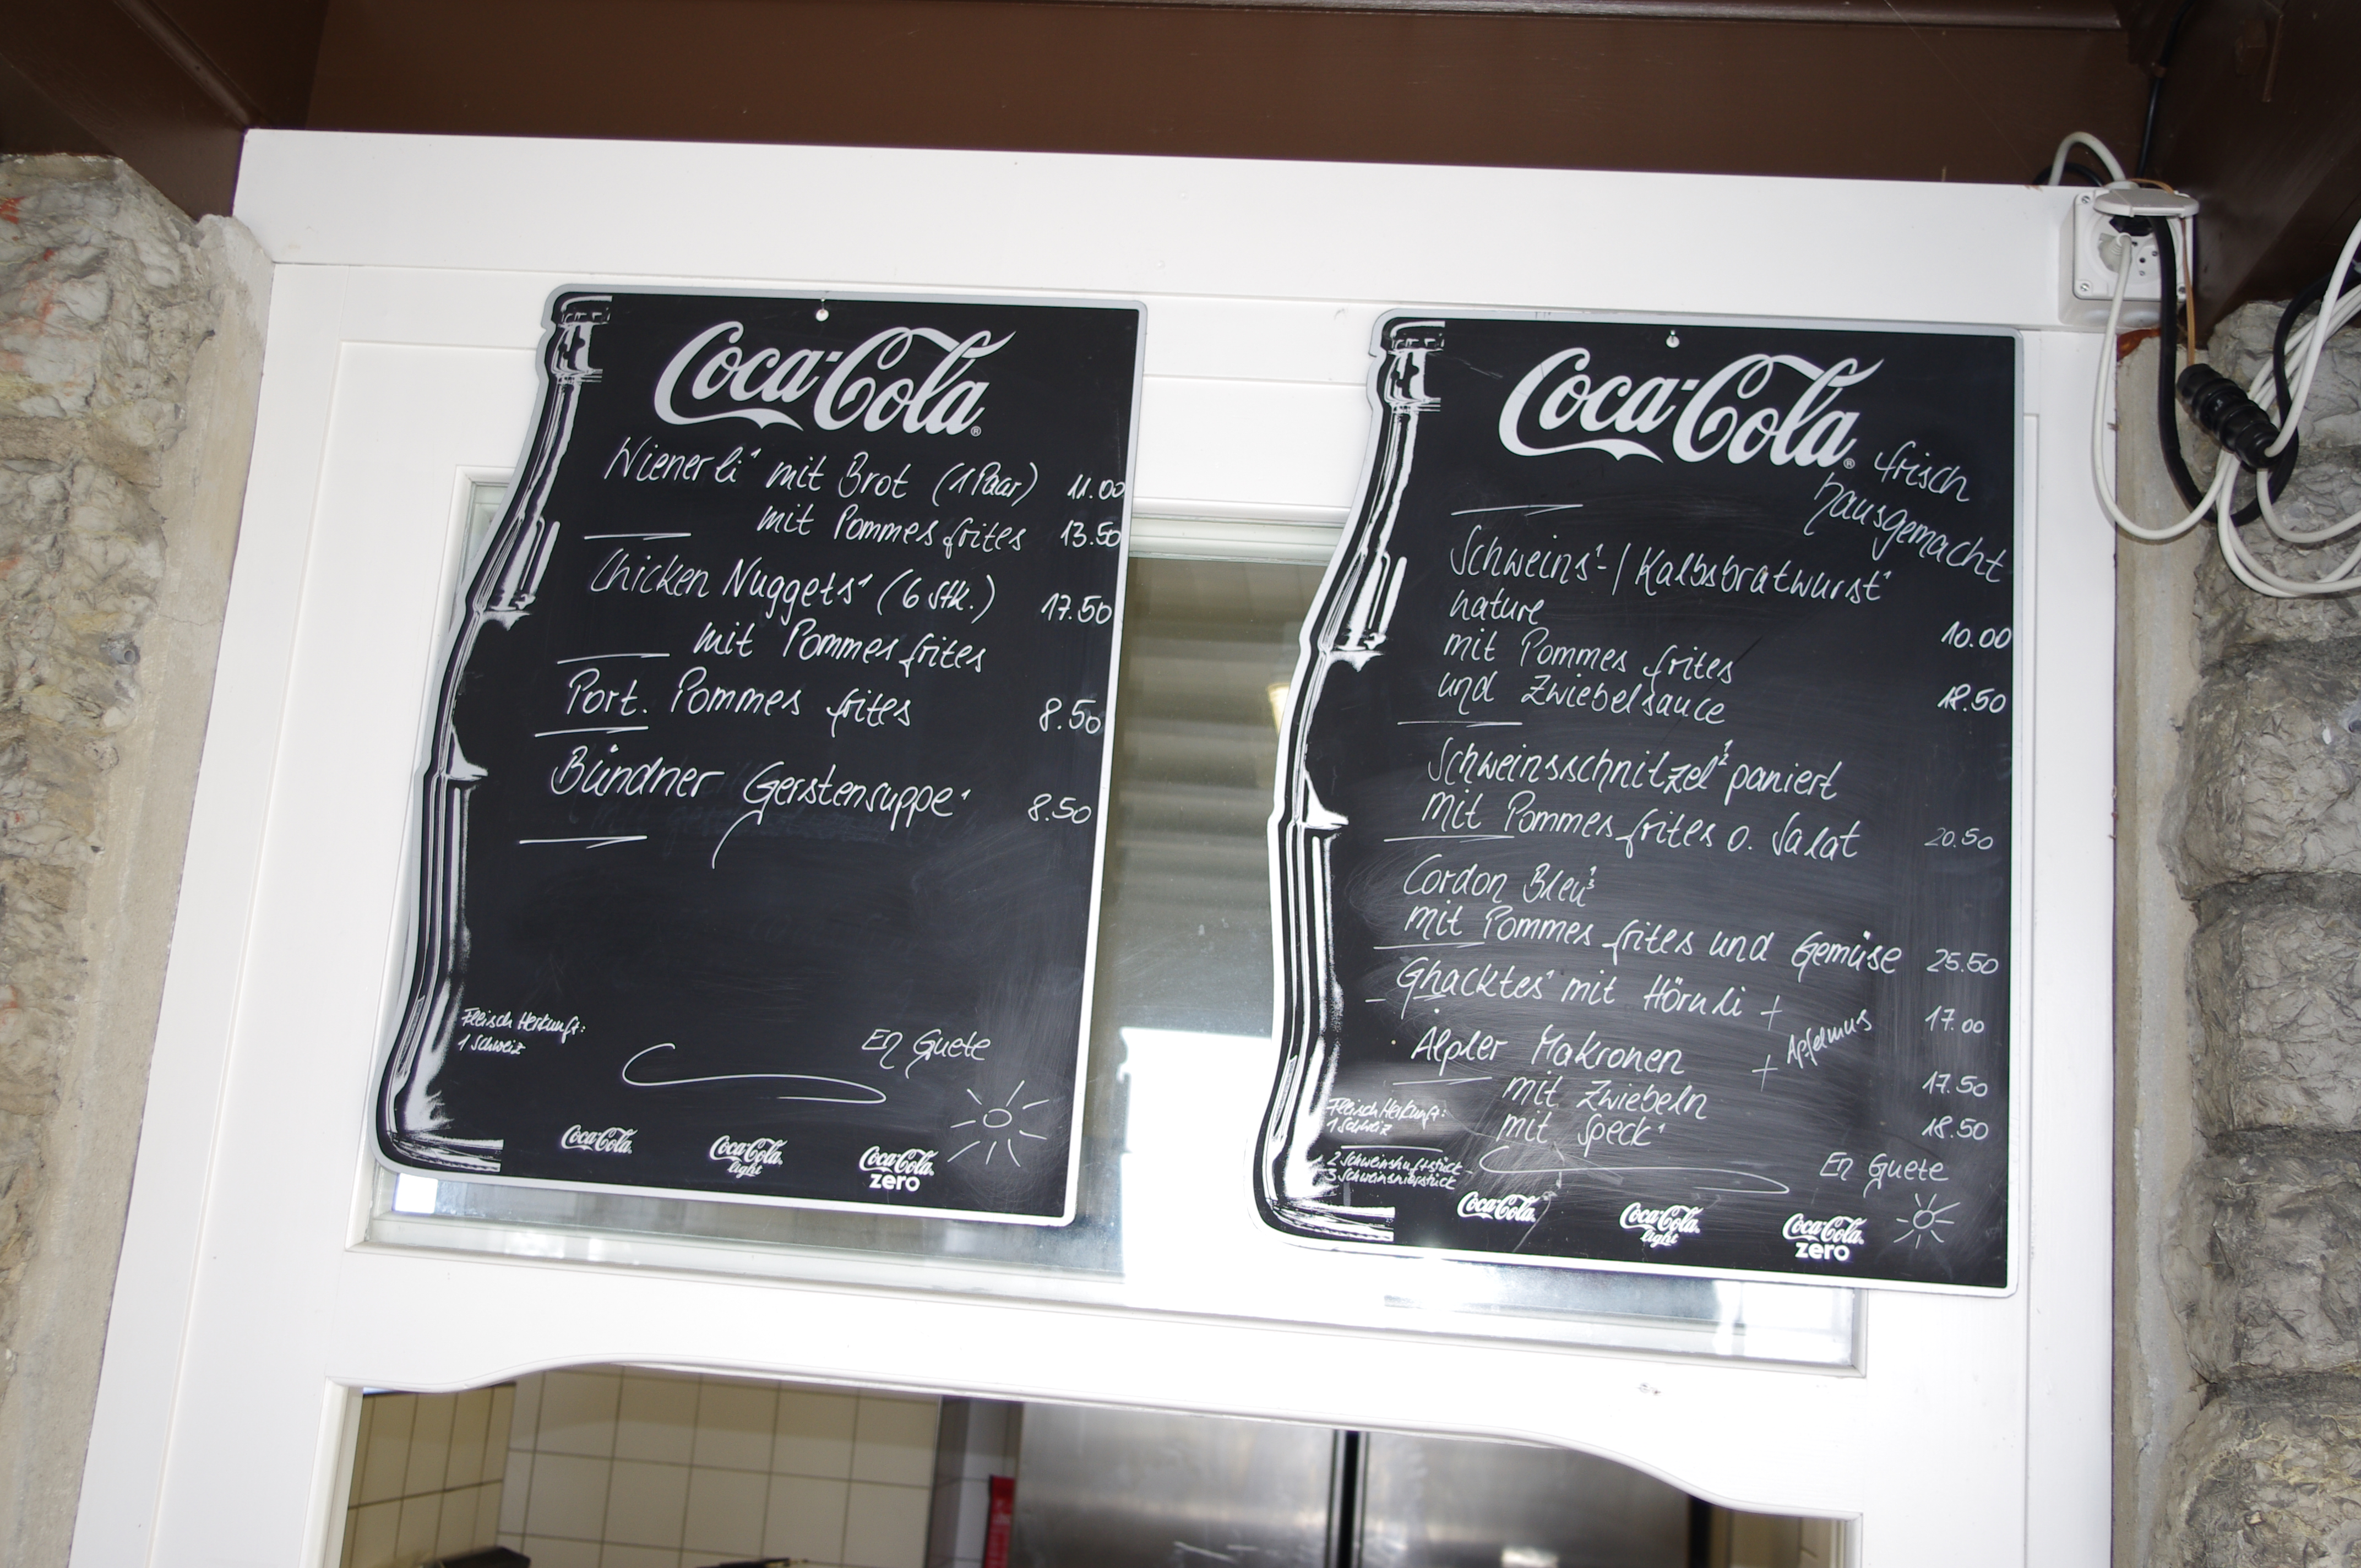 Coca-Cola
Wienerli¹ mit Brot (1 Paar) 11.00
mit Pommes frites 13.50
Chicken Nuggets¹ (6 Stk.) 17.50
mit Pommes frites
Port. Pommes frites 8.50
Bündner Gerstensuppe¹ 8.50
Fleisch Herkunft:
1 Schweiz
En Guete
Coca-Cola
Coca-Cola light
Coca-Cola zero
Coca-Cola
frisch
hausgemacht
Schweins¹-/Kalbsbratwurst¹
nature 10.00
mit Pommes frites
und Zwiebelsauce 18.50
Schweinsschnitzel¹² paniert
mit Pommes frites o. Salat 20.50
Cordon Bleu¹³
mit Pommes frites und Gemüse 25.50
Ghacktes¹ mit Hörnli + 17.00
Apfelmus
Älpler Makronen +
mit Zwiebeln 17.50
mit Speck¹ 18.50
Fleisch Herkunft:
1 Schweiz
2 Schweinshuftstück
3 Schweinsnierstück
En Guete
Coca-Cola
Coca-Cola light
Coca-Cola zero